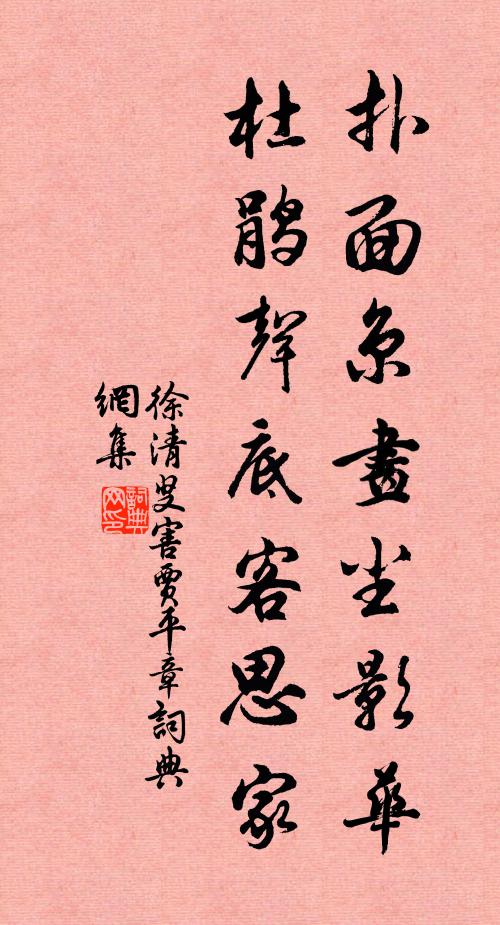 扑面京畫尘影華
杜鵑聲底客思家
徐清叟害賈平章詞典
網集
詞典
网印